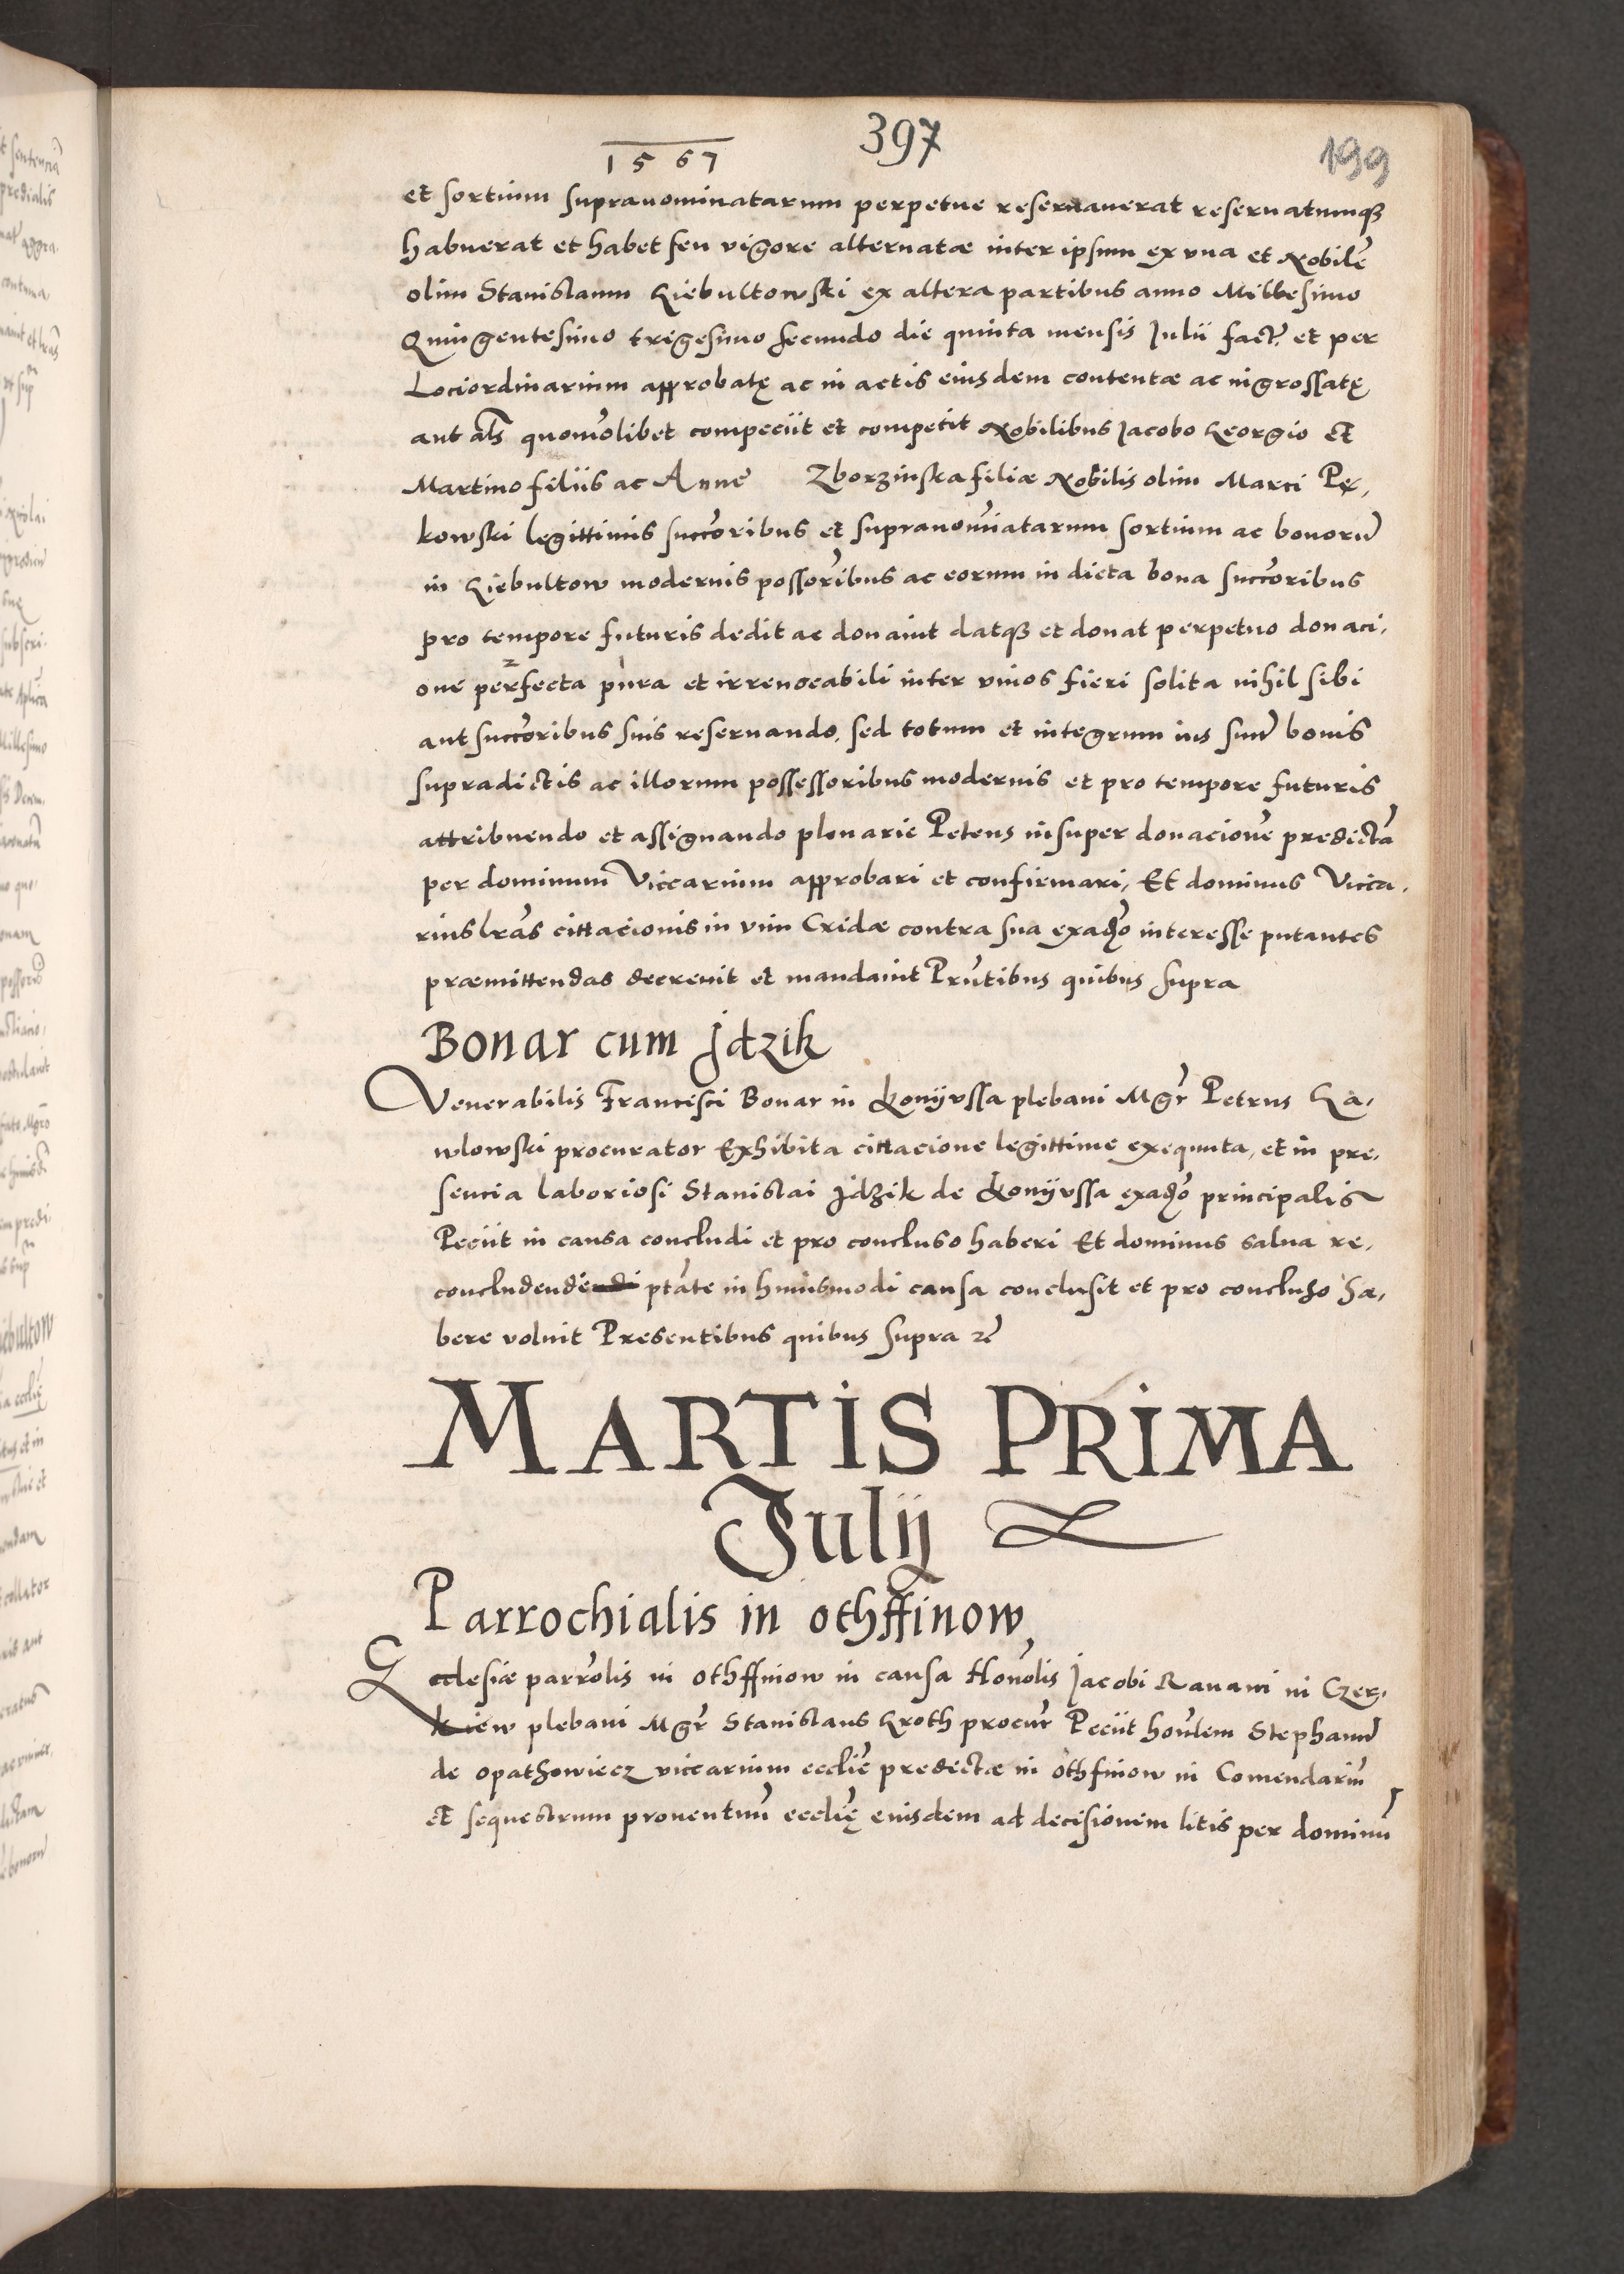 397
1567
199
et sortium supranominatarum perpetue reseruauerat reseruatumq₃
habuerat et habet seu vigore alternatæ inter ipsum ex vna et Nobile͂
olim Stanislaum Giebultowski ex altera partibus anno Millesimo
Quingentesimo trigesimo secundo die quinta mensis Julii fact? et per
Lociordinarium approbatę ac in actis eiusdem contentæ ac ingrossatę
aut al̃s quomo͂libet competiit et competit Nobilibus Jacobo Georgio et
Martino filiis ac Anne Zborzinska filiæ Nobilis olim Marci Pę,
kowski legittimis succo͂ribus et supranomi͂atarum sortium ac bonoru͂
in Giebultow modernis posso͂ribus ac eorum in dicta bona succo͂ribus
pro tempore futuris dedit ac donauit datq₃ et donat perpetuo donaci,
one perfecta pura et irreuocabili inter viuos fieri solita nihil sibi
aut succo͂ribus suis reseruando, sed totum et integrum ius suu͂ bonis
supradictis ac illorum possessoribus modernis et pro tempore futuris
attribuendo et assignando plenarie Petens insuper donacione͂ predicta͂
per dominum Viccarium approbari et confirmari, Et dominus Vicca,
rius lr͂as cittacionis in vim Cridæ contra sua exadṽo interesse putantes
præmittendas decreuit et mandauit Prn͂tibus quibus supra
Bonar cum Jdzik
Venerabilis Francisci Bonar in Konÿussa plebani Mgr͂ Petrus Ga,
wlowski procurator Exhibita cittacione legittime exequuta, et in pre,
sencia laboriosi Stanislai Jdzik de Konÿussa exadṽo principalis
Peciit in causa concludi et pro concluso haberi Et dominus salua re,
concludendendi pta͂te in huiusmodi causa conclusit et pro concluso ha,
bere voluit Presentibus quibus supra ⁊c͂
MARTIS PRIMA
Julÿ
Parrochialis in othffinow
Ecclesiæ parro͂lis in othffinow in causa Hono͂lis Jacobi Rauani in Czer,
kiew plebani Mgr͂ Stanislaus Groth procur͂ Peciit hono͂lem Stephanu͂
de opathowiecz viccarium eccli͂e predictæ in othfinow in Comendariu͂
et sequestrum prouentuu͂ eccli͂ę eiusdem ad decisionem litis per dominu͂